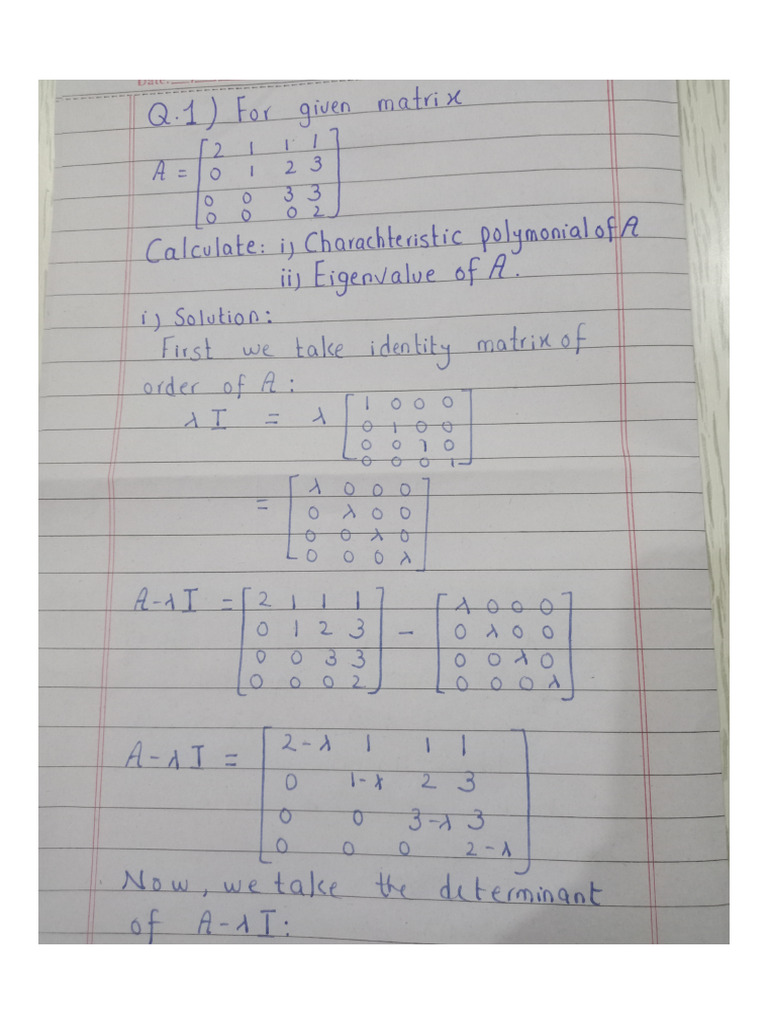 Date:
Q.1) For given matrix
A = [2 1 1 1
0 1 2 3
0 0 3 3
0 0 0 2]
Calculate: i) Charachteristic polymonial of A
ii) Eigenvalue of A.
i) Solution:
First we take identity matrix of
order of A:
λI = λ [1 0 0 0
0 1 0 0
0 0 1 0
0 0 0 1]
= [λ 0 0 0
0 λ 0 0
0 0 λ 0
0 0 0 λ]
A-λI = [2 1 1 1 0 1 2 3 0 0 3 3 0 0 0 2] - [λ 0 0 0 0 λ 0 0 0 0 λ 0 0 0 0 λ]
A-λI = [2-λ 1 1 1
0 1-λ 2 3
0 0 3-λ 3
0 0 0 2-λ]
Now, we take the determinant
of A-λI: